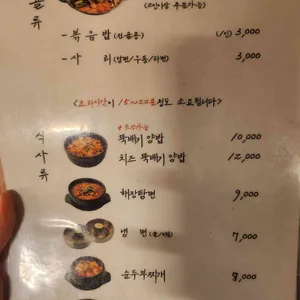 - 볶음밥 (전골용) (1인) 3,000
- 사리 (당면/우동/라면) 3,000
<조리시간이 15~20분정도 소요됩니다>
식사류
뚝배기 양밥 10,000
치즈 뚝배기 양밥 12,000
해장짬면 9,000
냉면 (물/비빔) 7,000
순두부찌개 8,000